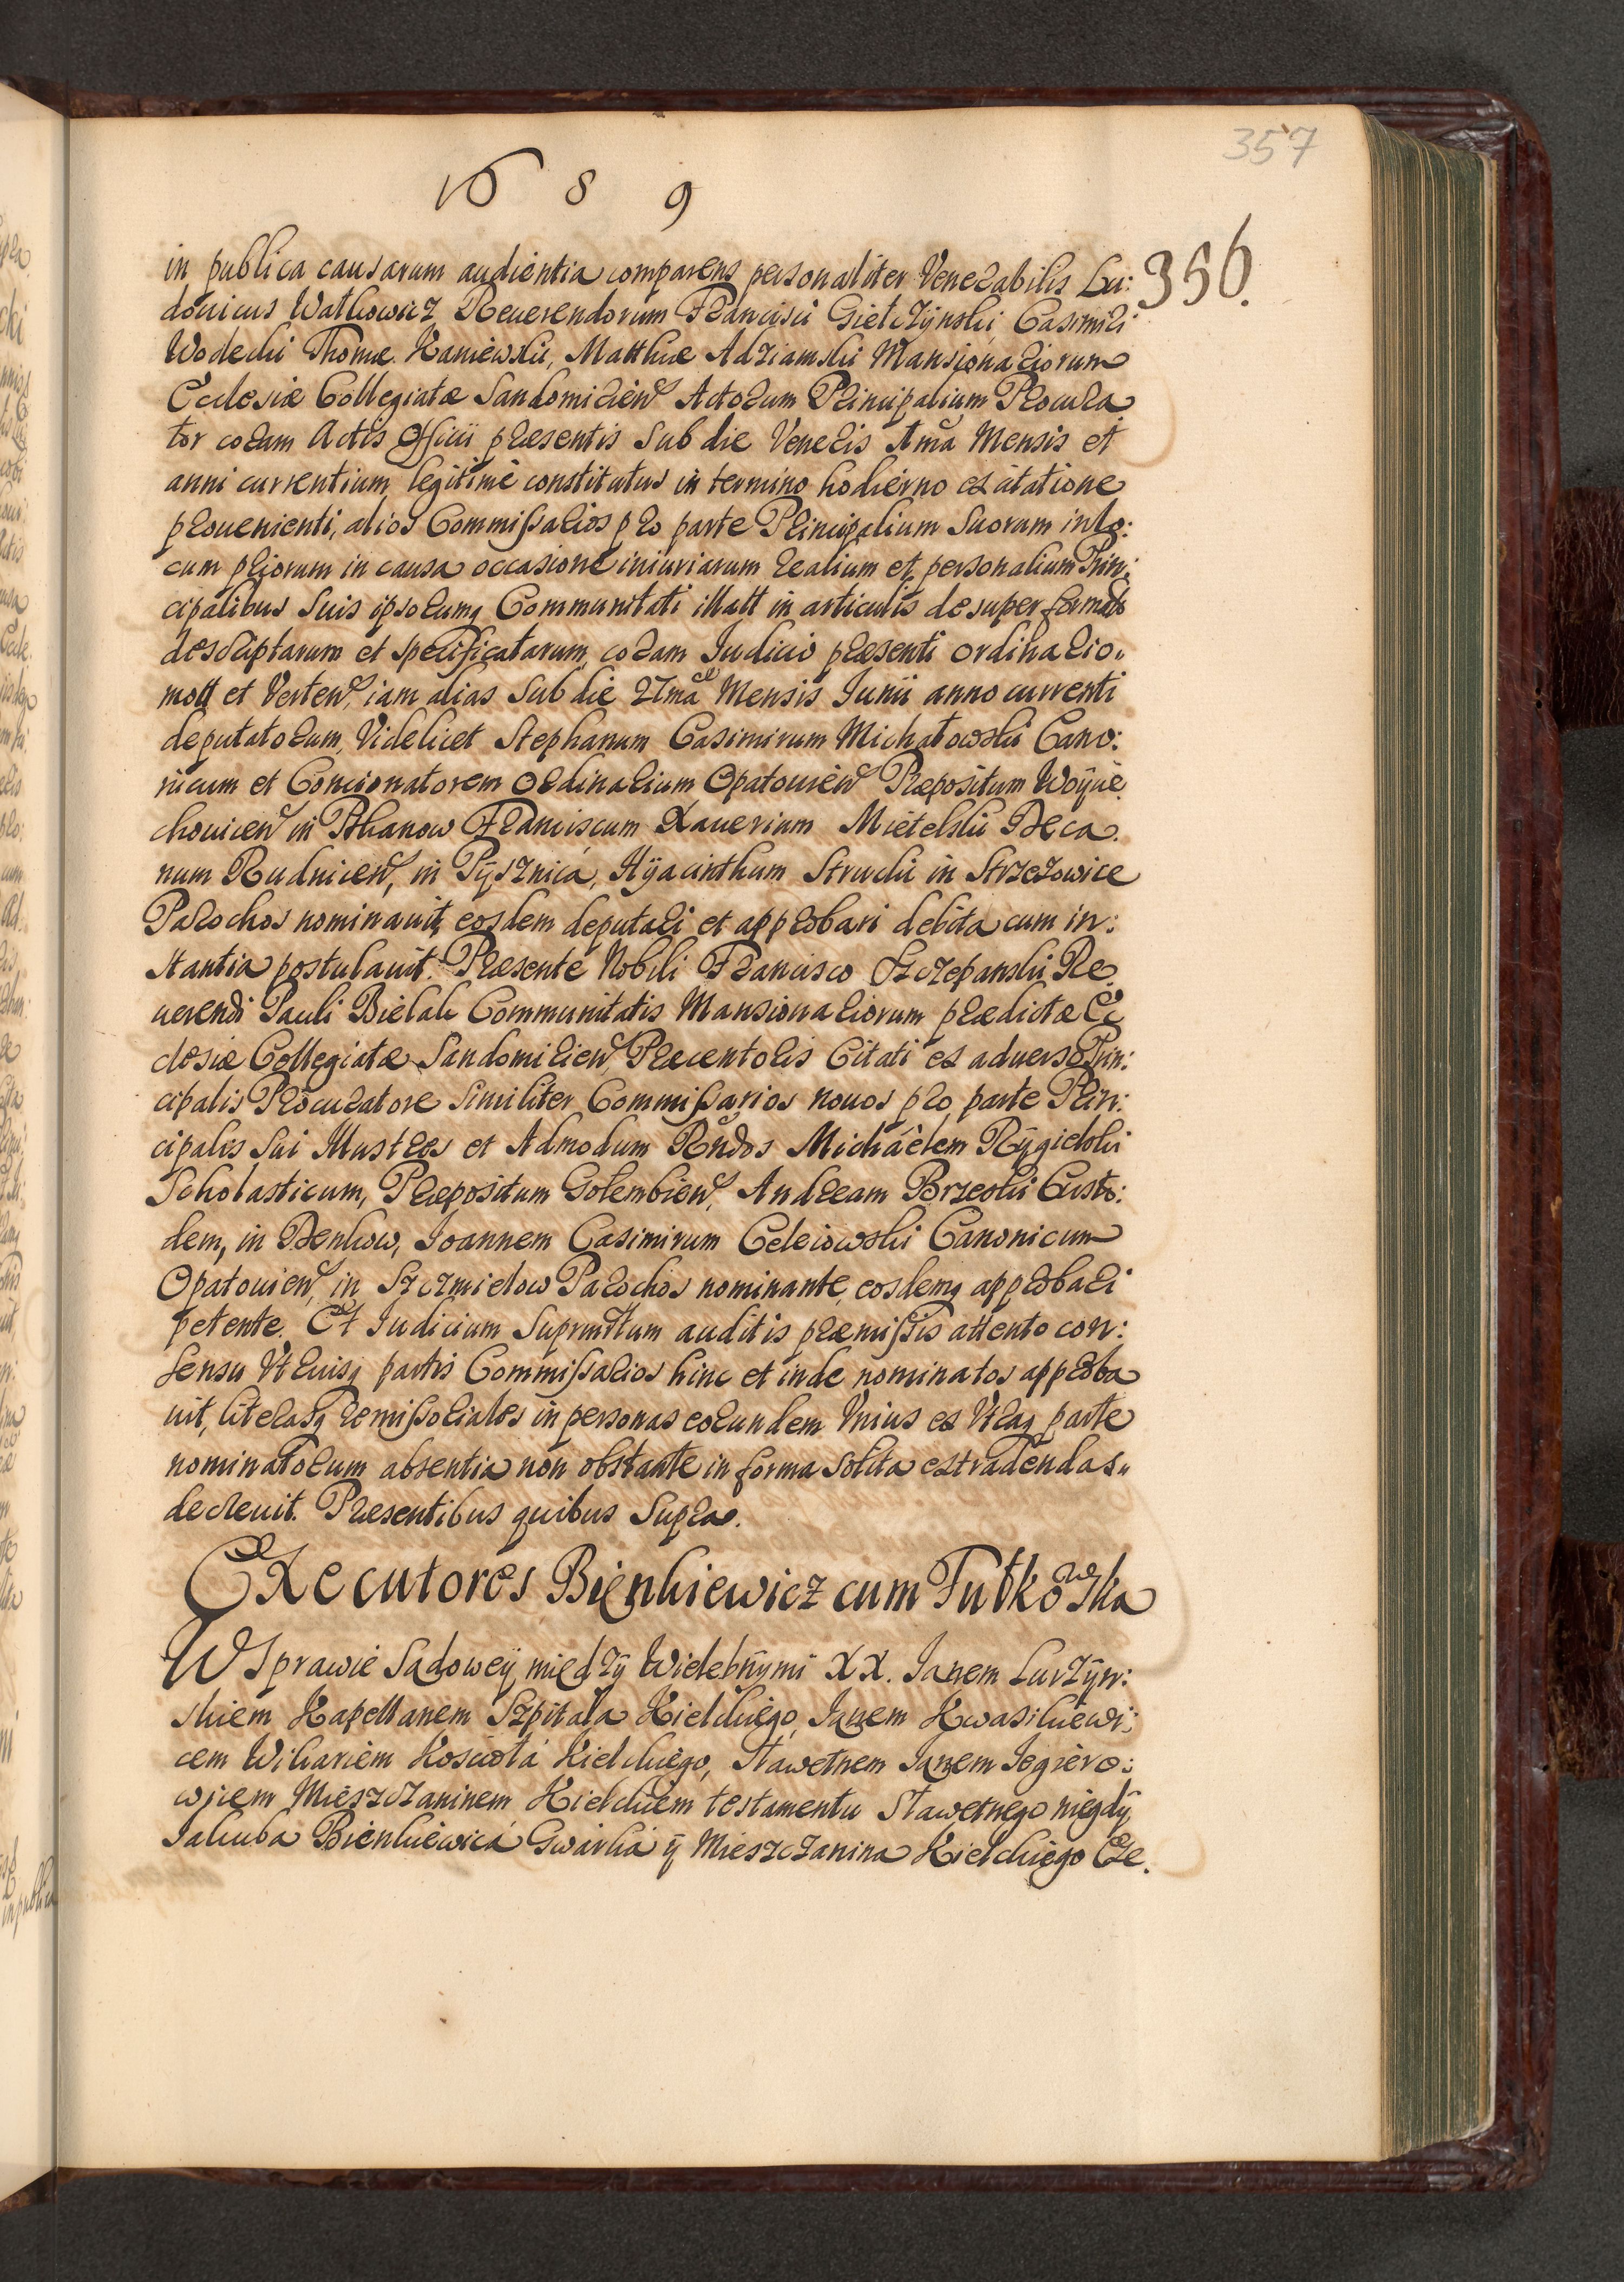 357
1689
356.
in publica causarum audientia comparens personaliter Venerabilis Lu:
douicus Watkowicz Reuerendorum Francisci Giełczÿnski, Casimiri
Wodecki Thomæ Kaniewski, Matthiæ Adziamski Mansionariorum
Ecclesiæ Collegiatæ Sandomirien Actorum Principalium Procura
tor coram Actis Officii præsentis Sub die Veneris 1ma Mensis et
anni currentium legitimè constitutus in termino hodierno ex citatione
prouenienti, alios Commissarios pro parte Principalium Suorum in lo:
cum priorum in causa occasione iniuriarum realium et personalium Prin:
cipalibus Suis ipsorumq Communitati illatt in articulis desuper formatis
descriptarum et specificatarum, coram Iudicio præsenti ordinario
mott et Verten, iam alias Sub die 27ma Mensis Iunii anno currenti
deputatorum, Videlicet Stephanum Casimirum Michałowski Cano:
nicum et Concionatorem Ordinarium Opatouien Præpositum Woÿcie
chouicen in Pkanow Franciscum Xauerium Mietelski Deca
num Rudnicen, in Pÿsznica, Hÿacinthum Strucki in Strzezowice
Parochos nominauit, eosdem deputari et approbari debita cum in:
stantia postulauit. Præsente Nobili Francisco Szczepanski Re
uerendi Pauli Bielak Communitatis Mansionariorum prædictæ Ec
clesiæ Collegiatæ Sandomirien Præcentoris Citati ex aduerso Prin:
cipalis Procuratore Similiter Commissarios nouos pro parte Prin:
cipalis Sui Illustres et Admodum Rndos Michaëlem Rÿgielski
Scholasticum, Præpositum Golembien, Andream Brzeski Custo:
dem, in Denkow, Ioannem Casimirum Celeiowski Canonicum
Opatouien, in Szczmielow Parochos nominante, eosdemq approbari
petente. Et Iudicium Suprmttum auditis præmissis attento con:
sensu Vtriusq partis Commissarios hinc et inde nominatos approba
uit, literasq remissoriales in personas eorundem Vnius ex Vtraq parte
nominatorum absentia non obstante in forma Solita extradendas
decreuit. Præsentibus quibus Supra.
Executores Bięnkiewicz cum Futkowska
W Sprawie Sądoweÿ między Wielebnÿmi XX. Ianem Lurzÿn:
skiem Kapellanem Szpitala Kielckiego, Ianem Kwasikiewi:
cem Wikariem Koscioła Kielckiego, Sławetnem Ianem Iegiero:
wjcem Mieszczaninem Kielckiem testamentu Sławetnego niegdÿ
Iakuba Bienkiewica Gwarka ÿ Mieszczanina Kielckiego Exe.